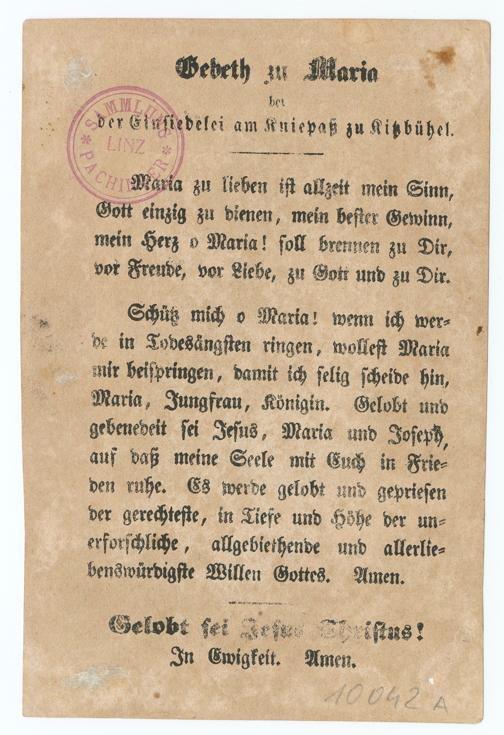 Gebeth zu Maria
bei
der Einsiedelei am Kniepaß zu Kitzbühel.
SAMMLUNG
LINZ
PACHINGER
Maria zu lieben ist allzeit mein Sinn,
Gott einzig zu dienen, mein bester Gewinn,
mein Herz o Maria! soll brennen zu Dir,
vor Freude, vor Liebe, zu Gott und zu Dir.
Schütz mich o Maria! wenn ich wer-
de in Todesängsten ringen, wollest Maria
mir beispringen, damit ich selig scheide hin,
Maria, Jungfrau, Königin. Gelobt und
gebenedeit sei Jesus, Maria und Joseph,
auf daß meine Seele mit Euch in Frie-
den ruhe. Es werde gelobt und gepriesen
der gerechteste, in Tiefe und Höhe der un-
erforschliche, allgebiethende und allerlie-
benswürdigste Willen Gottes. Amen.
Gelobt sei Jesus Christus!
In Ewigkeit. Amen.
10042 A